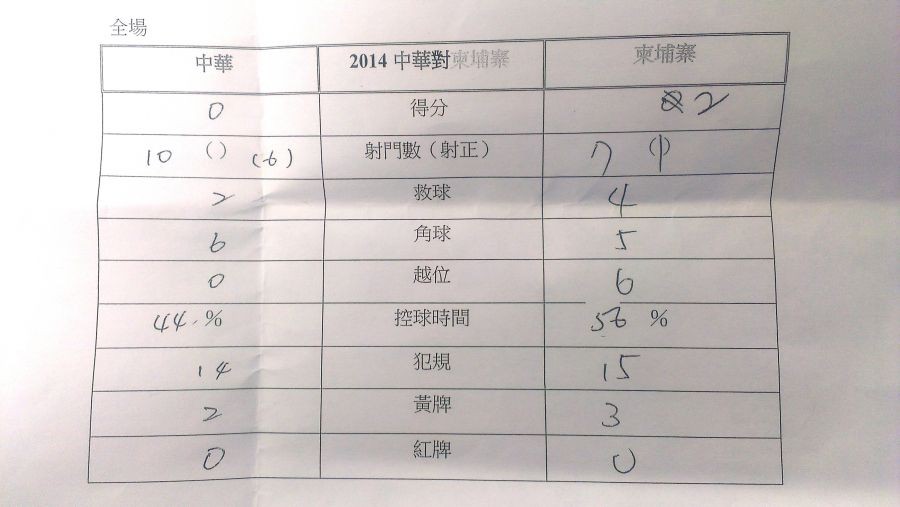 全場
中華 2014 中華對柬埔寨 柬埔寨
0 得分 2
10 () (6) 射門數（射正） 7 ()
2 救球 4
6 角球 5
0 越位 6
44.% 控球時間 56 %
14 犯規 15
2 黃牌 3
0 紅牌 0